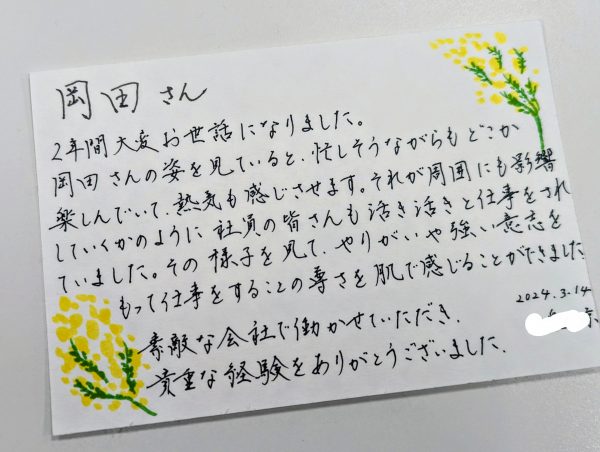 岡田さん
2年間大変お世話になりました。
岡田さんの姿を見ていると、忙しそうながらもどこか
楽しんでいて、熱気も感じさせます。それが周囲にも影響
していくかのように 社員の皆さんも活き活きと仕事をされ
ていました。その様子を見て、やりがいや強い意志を
もって仕事をすることの尊さを肌で感じることができました
2024.3.14
素敵な会社で働かせていただき、
貴重な経験をありがとうございました。